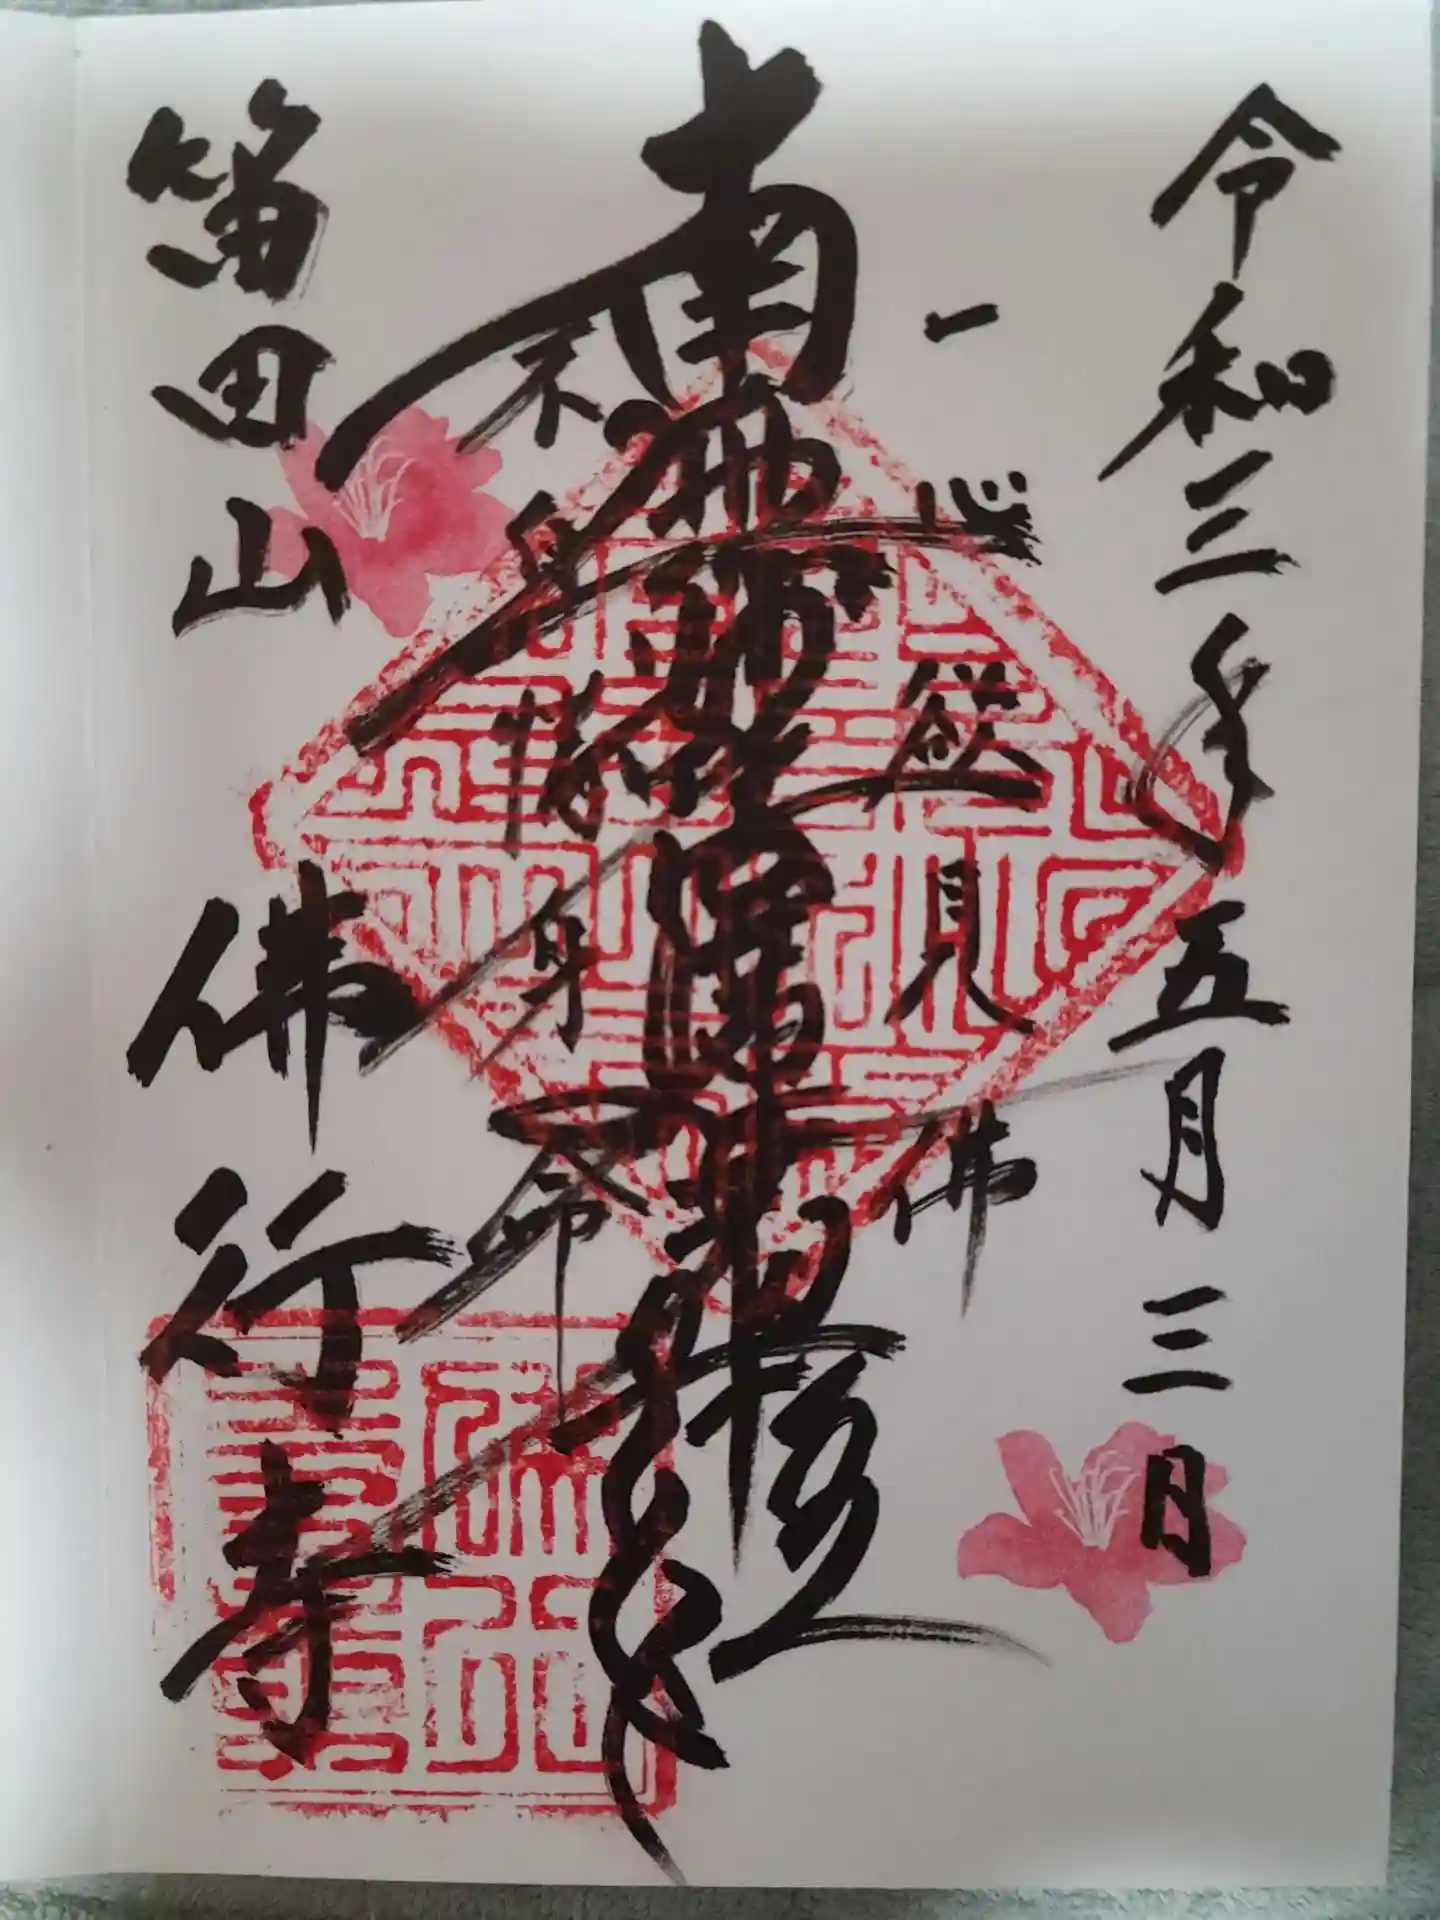 令和三年五月三日
一心欲見佛
南無妙法蓮華経
不自惜身命
笛田山
佛行寺